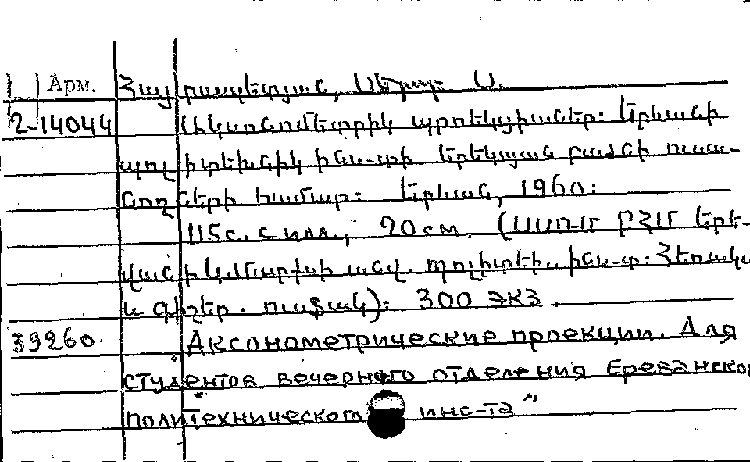 Арм. Հայրապետյան, Սերգ. Ա.
2-14044 Ակսոնոմետրիկ պրոեկցիաներ: Երևանի
պոլիտեխնիկ ինս-տի երեկոյան բաժնի ուսա-
նողների համար: Երևան, 1960:
115с. с илл., 20 см. (ՍՍՌՄ ԲՀՄ Երե-
վանի Կ. Մարքսի անվ. պոլիտեխ. ինս-տ: Հեռակա
և գիշեր. ուսուց.): 300 экз.
39260 Аксонометрические проекции. Для
студентов вечернего отделения Ереванског
политехнического инс-та"